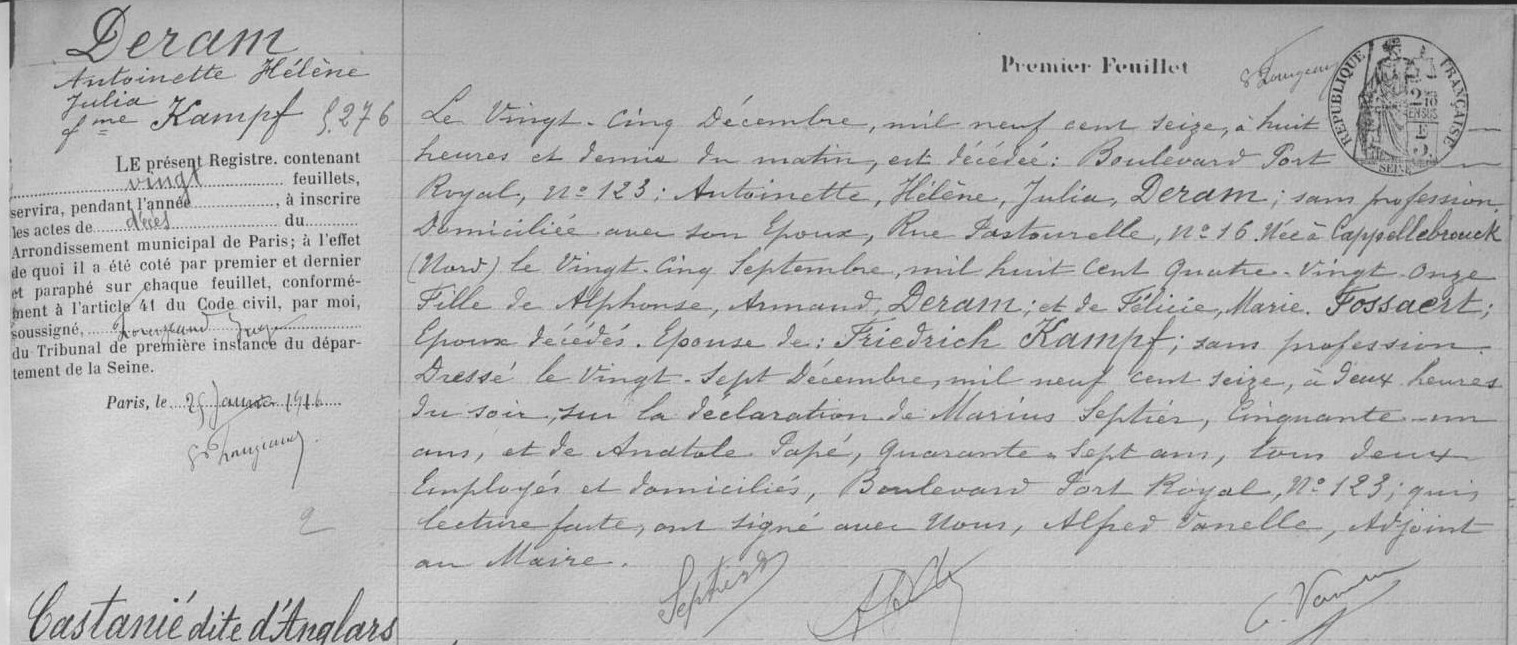 Deram
Antoinette Hélène
Julia
fme Kampf 5.276
LE présent Registre. contenant
vingt feuillets,
servira, pendant l'année, à inscrire
les actes de décès du
Arrondissement municipal de Paris; à l'effet
de quoi il a été coté par premier et dernier
et paraphé sur chaque feuillet, conformé-
ment à l'article 41 du Code civil, par moi,
soussigné, Juge
du Tribunal de première instance du dépar-
tement de la Seine.
Paris, le 25 Janvier 1916
2
Castanié dite d'Anglars
Premier Feuillet
RÉPUBLIQUE FRANÇAISE
2/10 EN SUS
SEINE
Le Vingt-Cinq Décembre, mil neuf cent seize, à huit
heures et demie du matin, est décédée: Boulevard Port
Royal, No 123; Antoinette, Hélène, Julia, Deram; sans profession.
Domiciliée avec son Epoux, Rue Pastourelle, No 16. Née à Cappellebrouck
(Nord) le Vingt-Cinq Septembre, mil huit Cent Quatre-Vingt-Onze
Fille de Alphonse, Armand, Deram; et de Félicie, Marie. Fossaert;
Epoux décédés. Epouse de: Friedrich Kampf; sans profession.
Dressé le Vingt-Sept Décembre, mil neuf cent seize, à deux heures
du soir, sur la déclaration de Marius Septier, Cinquante-un
ans, et de Anatole Papé, Quarante-Sept ans, tous deux
Employés et domiciliés, Boulevard Port Royal, No 123; qui,
lecture faite, ont signé avec Nous, Alfred Vanelle, Adjoint
au Maire.
Septier